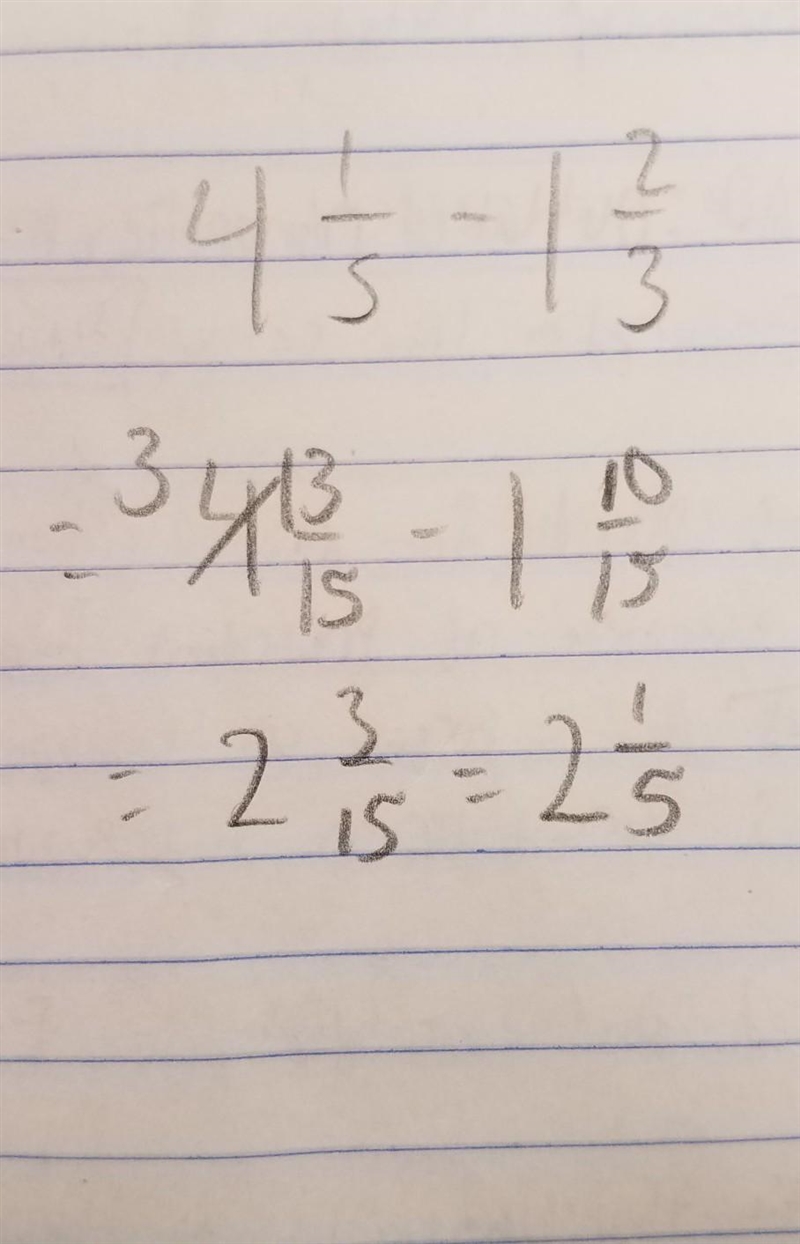 4 1/5 - 1 2/3
= 3 4 13/15 - 1 10/15
= 2 3/15 = 2 1/5